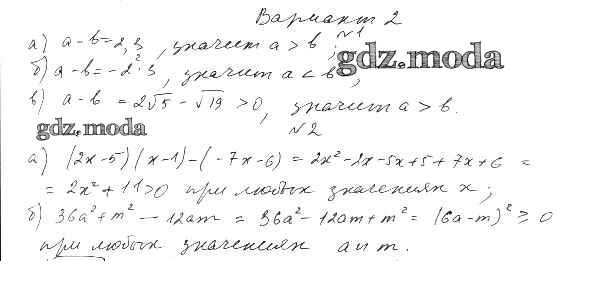 Вариант 2
№1
а) a-b=2,3, значит a > b;
gdz.moda
б) a-b=-2,3, значит a < b;
в) a-b = 2√5 - √19 > 0, значит a > b.
gdz.moda
№2
а) (2x-5)(x-1)-(-7x-6) = 2x²-2x-5x+5+7x+6 =
= 2x²+11>0 при любых значениях x;
б) 36a²+m² - 12am = 36a²-12am+m² = (6a-m)² ≥ 0
при любых значениях a и m.